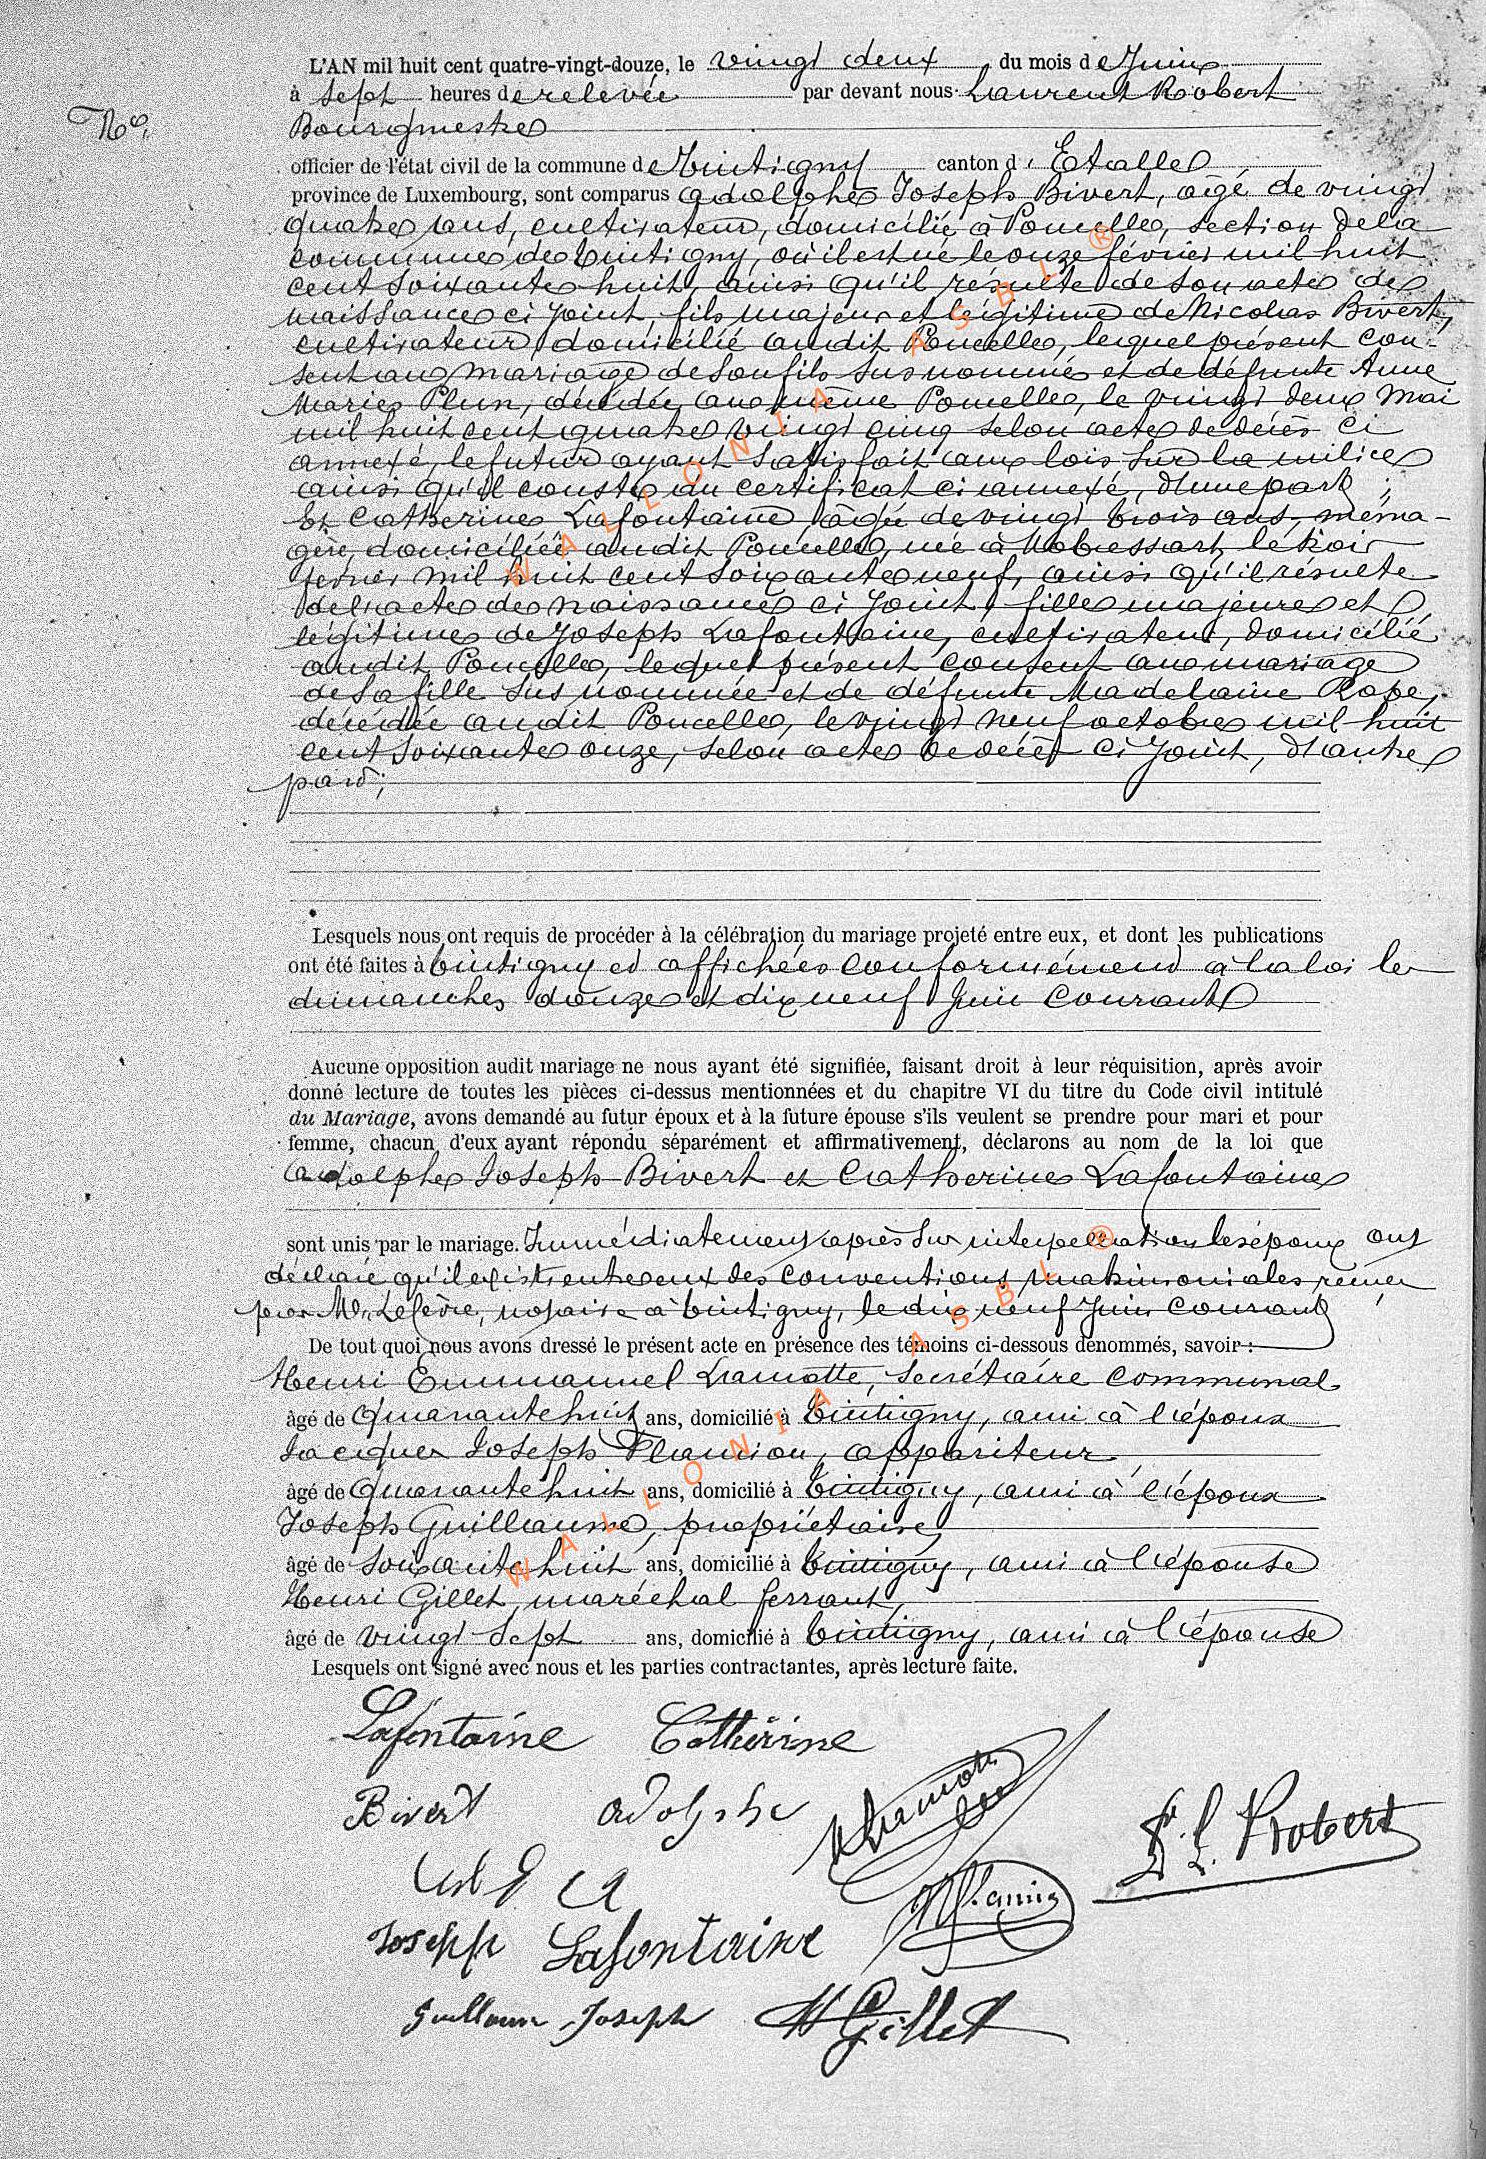 L'AN mil huit cent quatre-vingt-douze, le vingt deux du mois de Juin
à sept heures de relevée par devant nous Laurent Robert
No.
Bourgmestre
officier de l'état civil de la commune de Tintigny canton d'Etalle
province de Luxembourg, sont comparus Adolphe Joseph Bivert, âgé de vingt
quatre ans, cultivateur, domicilié à Poncelle, section de la
commune de Tintigny, où il est né le onze février mil huit
cent soixante huit, ainsi qu'il résulte de son acte de
naissance ci joint, fils majeur et légitime de Nicolas Bivert,
cultivateur domicilié audit Poncelle, lequel présent con-
sent au mariage de son fils sus nommé et de défunte Anne
Marie Plun, décédée au même Poncelle, le vingt deux Mai
mil huit cent quatre vingt cinq selon acte de décès ci
annexé, le futur ayant satisfait aux lois sur la milice
ainsi qu'il conste du certificat ci annexé, d'une part;
Et Catherine Lafontaine, âgée de vingt trois ans, ména-
gère, domiciliée audit Poncelle, née à Nobressart, le trois
février mil huit cent soixante neuf, ainsi qu'il résulte
de l'acte de naissance ci joint, fille majeure et
légitime de Joseph Lafontaine, cultivateur, domicilié
audit Poncelle, lequel présent consent au mariage
de sa fille sus nommée et de défunte Madelaine Rope,
décédée audit Poncelle, le vingt neuf octobre mil huit
cent soixante onze, selon acte de décès ci joint, d'autre
part;
Lesquels nous ont requis de procéder à la célébration du mariage projeté entre eux, et dont les publications
ont été faites à Tintigny et affichées conformément à la loi les
dimanches douze et dix neuf Juin courant
Aucune opposition audit mariage ne nous ayant été signifiée, faisant droit à leur réquisition, après avoir
donné lecture de toutes les pièces ci-dessus mentionnées et du chapitre VI du titre du Code civil intitulé
du Mariage, avons demandé au futur époux et à la future épouse s'ils veulent se prendre pour mari et pour
femme, chacun d'eux ayant répondu séparément et affirmativement, déclarons au nom de la loi que
Adolphe Joseph Bivert et Catherine Lafontaine
sont unis par le mariage. Immédiatement après sur interpellation les époux ont
déclaré qu'il existe entre eux des conventions matrimoniales, reçues
par Me. Lefèvre, notaire à Tintigny, le dix neuf Juin courant
De tout quoi nous avons dressé le présent acte en présence des témoins ci-dessous dénommés, savoir :
Henri Emmanuel Lamotte, secrétaire communal
âgé de Quarante huit ans, domicilié à Tintigny, ami à l'époux
Jacques Joseph Flamion, appariteur
âgé de Quarante huit ans, domicilié à Tintigny, ami à l'époux
Joseph Guillaume, propriétaire,
âgé de soixante huit ans, domicilié à Tintigny, ami à l'épouse
Henri Gillet, maréchal ferrant,
âgé de vingt sept ans, domicilié à Tintigny, ami à l'épouse
Lesquels ont signé avec nous et les parties contractantes, après lecture faite.
Lafontaine Catherine
Bivert Adolphe
L. Robert
Joseph Lafontaine
Guillaume Joseph H Gillet
WALLONIA ASBL ®
WALLONIA ASBL ®